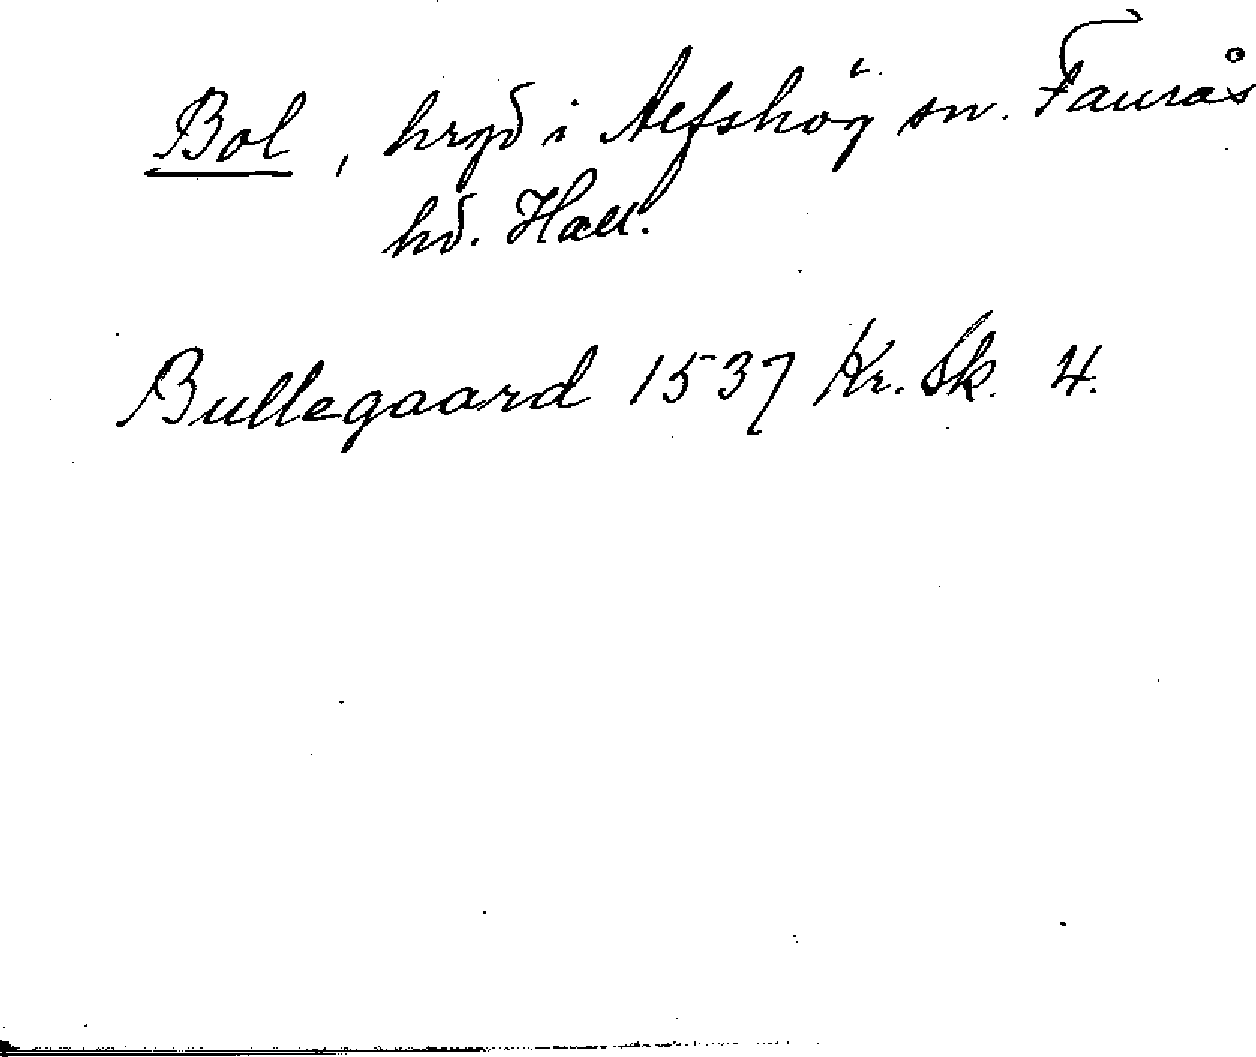 Bol, hrgd i Alfshög sn. Faurås
hd. Hall.
Bullegaard 1537 Kr. Sk. 4.